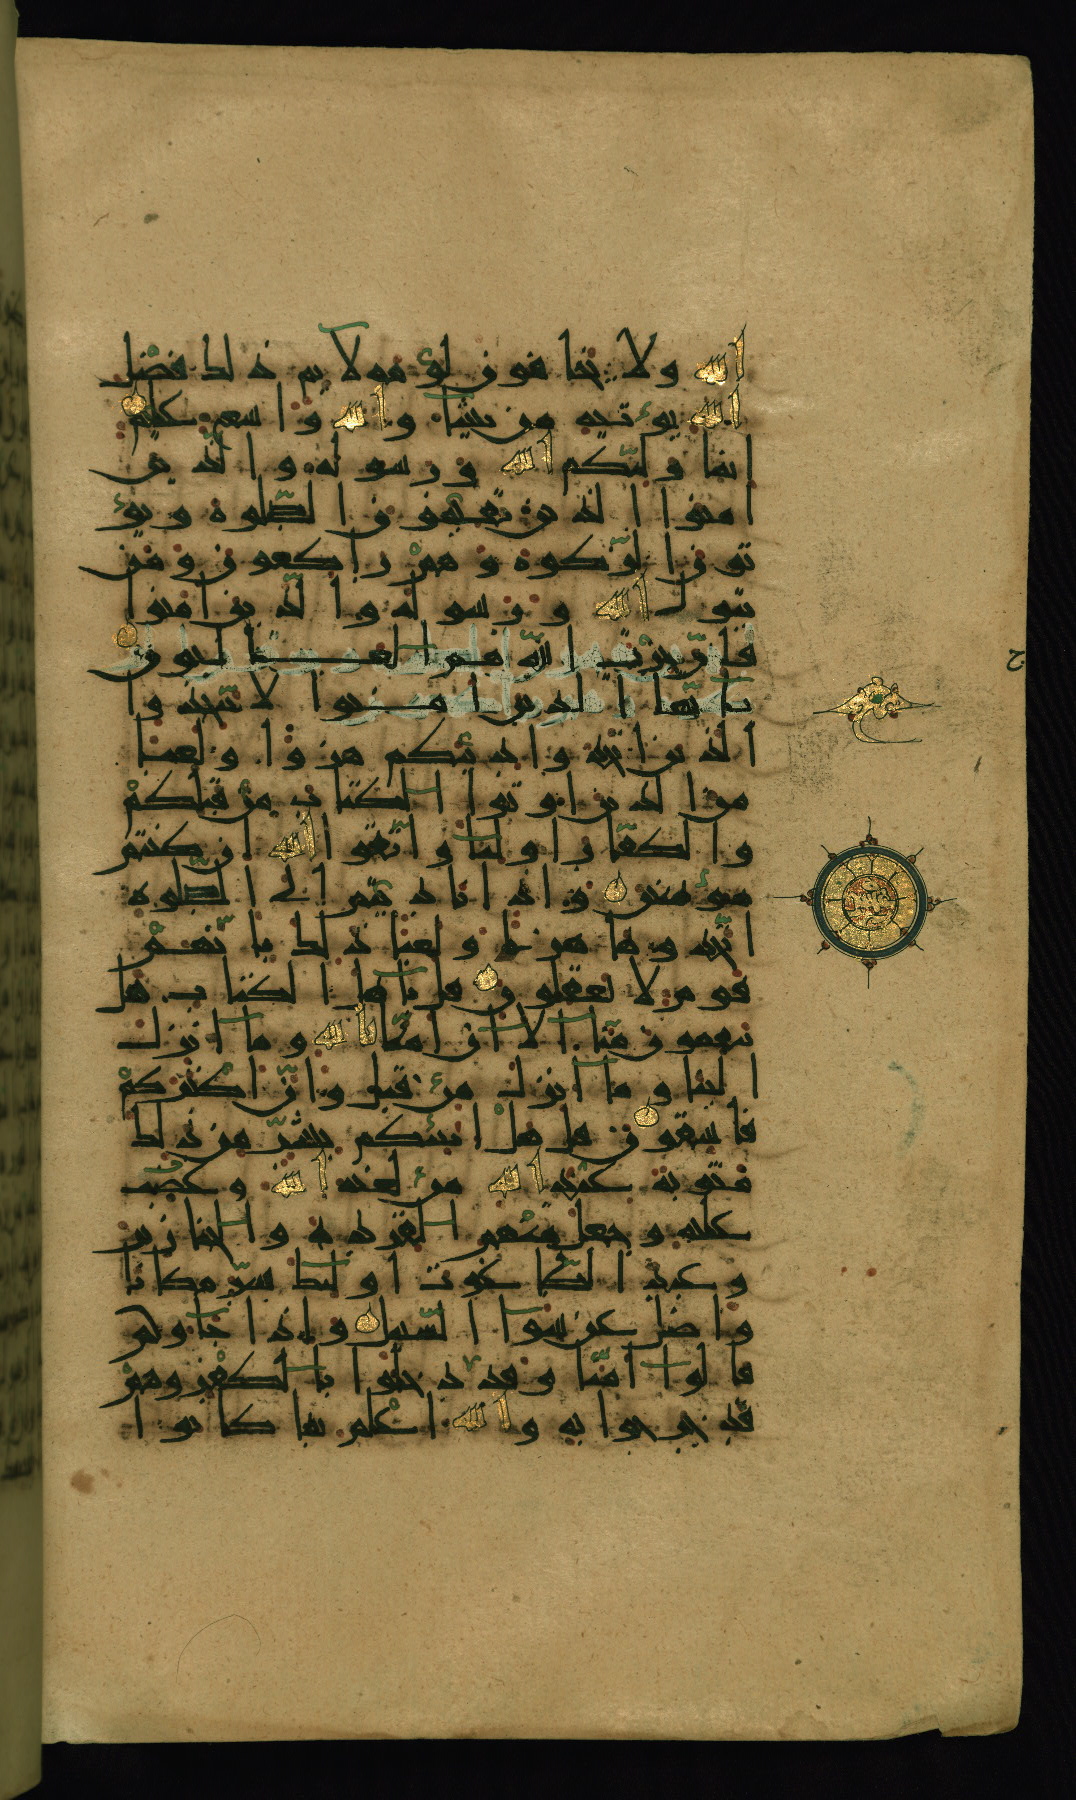 الله ولا يخافون لومة لائم ذلك فضل
الله يؤتيه من يشاء والله واسع عليم
انما وليكم الله ورسوله والذين
امنوا الذين يقيمون الصلوة ويؤ
تون الزكوة وهم راكعون ومن
يتول الله ورسوله والذين امنوا
فان حزب الله هم الغالبون
يا ايها الذين امنوا لا تتخذوا
الذين اتخذوا دينكم هزوا ولعبا
من الذين اوتوا الكتاب من قبلكم
والكفار اولياء واتقوا الله ان كنتم
مؤمنين واذا ناديتم الى الصلوة
اتخذوها هزوا ولعبا ذلك بانهم
قوم لا يعقلون قل يا اهل الكتاب هل
تنقمون منا الا ان امنا بالله وما انزل
الينا وما انزل من قبل وان اكثركم
فاسقون قل هل انبئكم بشر من ذلك
مثوبة عند الله من لعنه الله وغضب
عليه وجعل منهم القردة والخنازير
وعبد الطاغوت اولئك شر مكانا
واضل عن سواء السبيل واذا جاؤكم
قالوا امنا وقد دخلوا بالكفر وهم
قد خرجوا به والله اعلم بما كانوا
ح